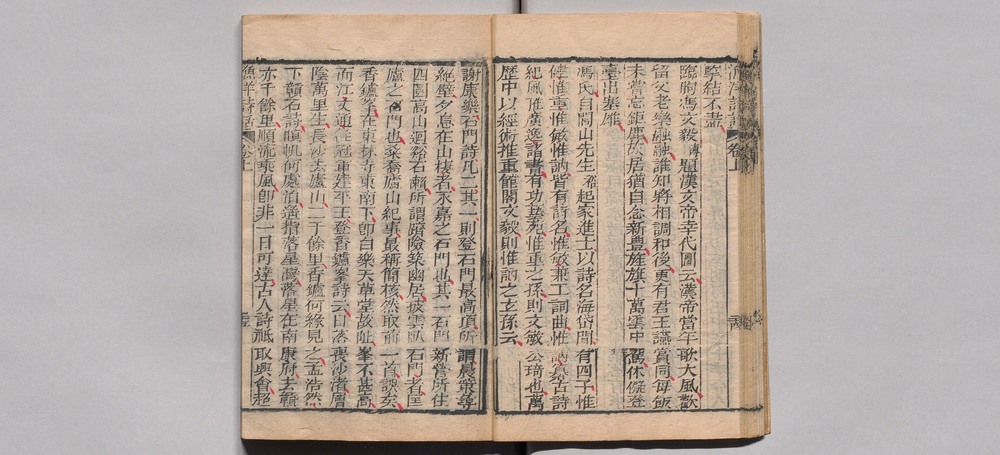 漁洋詩話 卷上
擎結不盡
臨朐馮文毅溥題漢文帝幸代圖云漢帝當年歌大風歡
留父老樂融融誰知將相調和後更有君王讌賞同每飯
未嘗忘鉅鹿故居猶自念新豐旌旗十萬雲中獵休儗登
臺出塞雄
馮氏自閭山先生裕起家進士以詩名海岱間有四子惟
健惟重惟敏惟訥皆有詩名惟敏兼工詞曲惟訥纂古詩
紀風雅廣逸諸書有功藝苑惟重之孫則文敏公琦也萬
歷中以經術推重館閣文毅則惟訥之玄孫云
謝康樂石門詩凡二其一則登石門最高頂所謂晨策尋
絕壁夕息在山棲者永嘉之石門也其一石門新營所住
四面高山迴谿石瀨所謂躋險築幽居披雲臥石門者匡
廬之石門也桑喬廬山紀事最稱簡核然取前一首誤矣
香鑪峯在東林寺東南下即白樂天草堂故址峯不甚高
而江文通從冠軍建平王登香鑪峯詩云日落長沙渚層
陰萬里生長沙去廬山二千餘里香鑪何緣見之孟浩然
下贛石詩暝帆何處泊遙指落星灣落星在南康府去贛
亦千餘里順流乘風即非一日可達古人詩祇取興會超
漁洋詩話 卷上